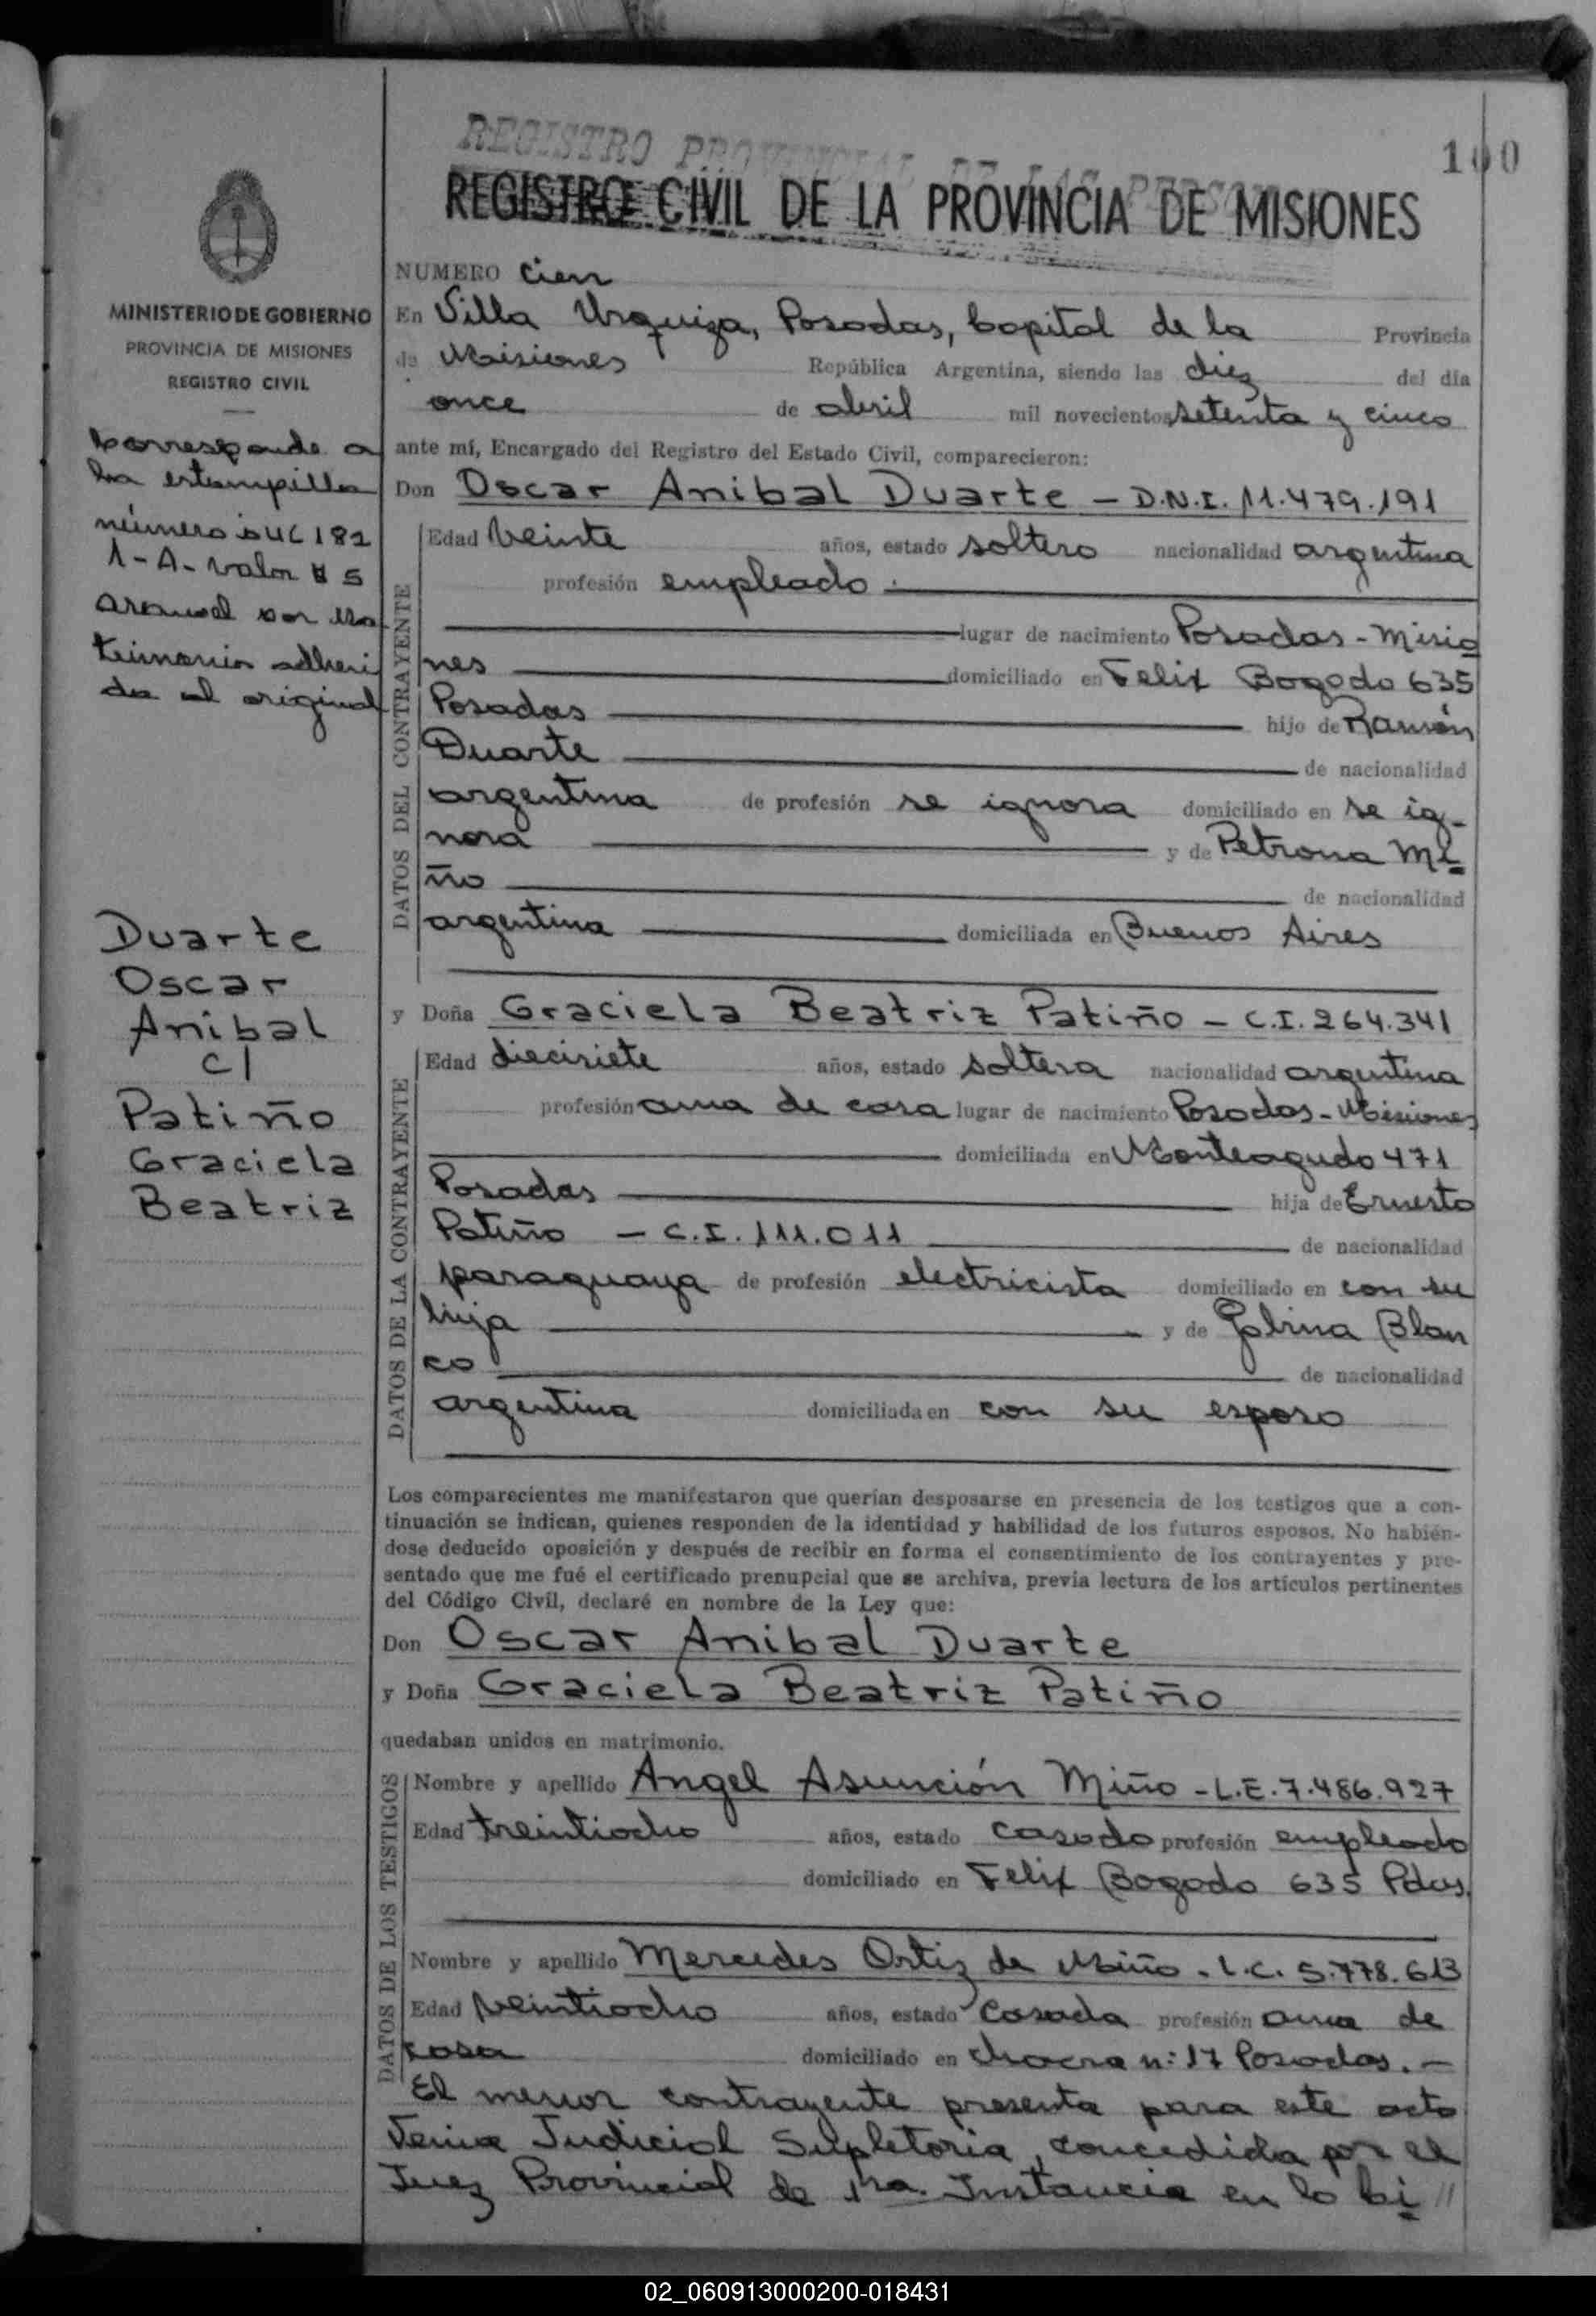 REGISTRO PROVINCIAL DE LAS PERSONAS
100
REGISTRO CIVIL DE LA PROVINCIA DE MISIONES
MINISTERIO DE GOBIERNO
PROVINCIA DE MISIONES
REGISTRO CIVIL
Corresponde a
la estampilla
número 182
1-A- valor $ 5
arancel por Ma
trimonio adheri
do al original
Duarte
Oscar
Anibal
c/
Patiño
Graciela
Beatriz
NUMERO cien
En Villa Urquiza, Posadas, Capital de la Provincia
de Misiones República Argentina, siendo las diez del día
once de abril mil novecientos setenta y cinco
ante mí, Encargado del Registro del Estado Civil, comparecieron:
Don Oscar Anibal Duarte - D.N.I. 11.479.191
DATOS DEL CONTRAYENTE
Edad veinte años, estado soltero nacionalidad argentina
profesión empleado.
lugar de nacimiento Posadas - Misio
nes domiciliado en Felix Bogado 635
Posadas hijo de Ramón
Duarte de nacionalidad
argentina de profesión se ignora domiciliado en se ig-
nora y de Petrona Mi
ño de nacionalidad
argentina domiciliada en Buenos Aires
y Doña Graciela Beatriz Patiño - C.I. 264.341
DATOS DE LA CONTRAYENTE
Edad diecisiete años, estado soltera nacionalidad argentina
profesión ama de casa lugar de nacimiento Posadas - Misiones
domiciliada en Monteagudo 471
Posadas hija de Ernesto
Patiño - C.I. 111.011 de nacionalidad
paraguaya de profesión electricista domiciliado en con su
hija y de Gabina Blan
co de nacionalidad
argentina domiciliada en con su esposo
Los comparecientes me manifestaron que querían desposarse en presencia de los testigos que a con-
tinuación se indican, quienes responden de la identidad y habilidad de los futuros esposos. No habién-
dose deducido oposición y después de recibir en forma el consentimiento de los contrayentes y pre-
sentado que me fué el certificado prenupcial que se archiva, previa lectura de los artículos pertinentes
del Código Civil, declaré en nombre de la Ley que:
Don Oscar Anibal Duarte
y Doña Graciela Beatriz Patiño
quedaban unidos en matrimonio.
DATOS DE LOS TESTIGOS
Nombre y apellido Angel Asunción Miño - L.E. 7.486.927
Edad treintiocho años, estado casado profesión empleado
domiciliado en Felix Bogado 635 Pdas.
Nombre y apellido Mercedes Ortiz de Miño - L.C. 5.778.613
Edad veintiocho años, estado casada profesión ama de
casa domiciliado en chacra n: 17 Posadas. -
El menor contrayente presenta para este acto
Venia Judicial Supletoria, concedida por el
Juez Provincial de 1ra. Instancia en lo Ci //
02_060913000200-018431